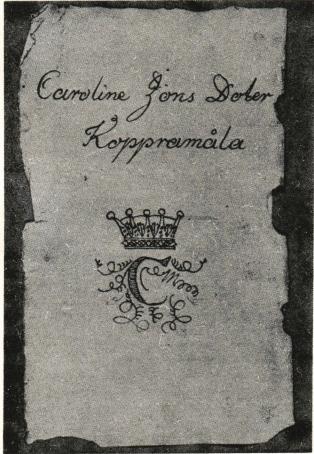 Caroline Jöns Doter
Koppramåla
C